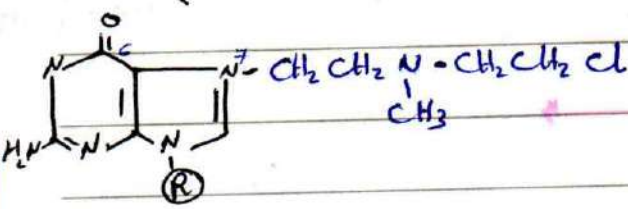 O
N 6 7 N - CH2 CH2 N - CH2 CH2 Cl
CH3
H2N N N
R